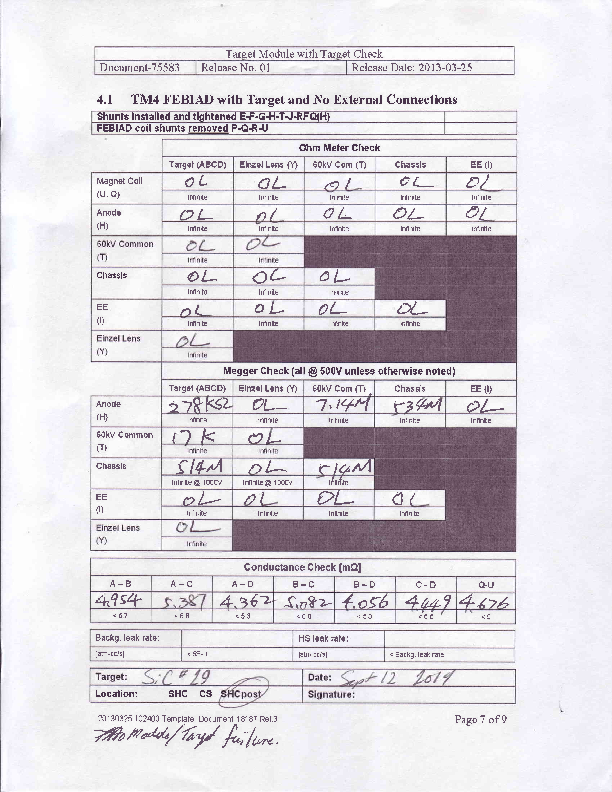 Target Module with Target Check
Document-75583 Release No. 01 Release Date: 2013-03-25
4.1 TM4 FEBIAD with Target and No External Connections
Shunts installed and tightened E-F-G-H-T-J-RFQ(H)
FEBIAD coil shunts removed P-Q-R-U
Ohm Meter Check
Target (ABCD) Einzel Lens (Y) 60kV Com (T) Chassis EE (I)
Magnet Coil OL OL OL OL OL
(U, Q) Infinite Infinite Infinite Infinite Infinite
Anode OL OL OL OL OL
(H) Infinite Infinite Infinite Infinite Infinite
60kV Common OL OL
(T) Infinite Infinite
Chassis OL OL OL
Infinite Infinite Infinite
EE OL OL OL OL
(I) Infinite Infinite Infinite Infinite
Einzel Lens OL
(Y) Infinite
Megger Check (all @ 500V unless otherwise noted)
Target (ABCD) Einzel Lens (Y) 60kV Com (T) Chassis EE (I)
Anode 278KΩ OL 7.14M 534M OL
(H) Infinite Infinite Infinite Infinite Infinite
60kV Common 17 K OL
(T) Infinite Infinite
Chassis 514M OL 514M
Infinite @ 1000V Infinite @ 1000V Infinite
EE OL OL OL OL
(I) Infinite Infinite Infinite Infinite
Einzel Lens OL
(Y) Infinite
Conductance Check [mΩ]
A – B A – C A – D B – C B – D C - D Q-U
4.954 5.387 4.362 5.082 4.056 4.449 4.676
Backg. leak rate: HS leak rate:
[atm-cc/s] [atm-cc/s] < Backg. leak rate
Target: SiC #29 Date: Sept 12 2019
Location: SHC CS SHCpost Signature:
20130325 102400 Template: Document 18187 Rel.3 Page 7 of 9
Module/Target failure.